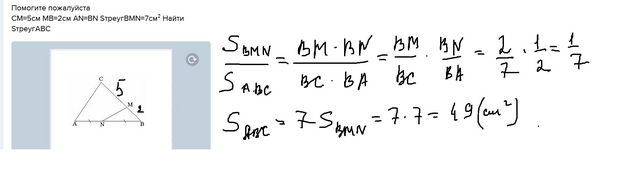 Помогите пожалуйста
СМ=5см МВ=2см AN=BN SтреугBMN=7см² Найти
SтреугАВС
S_BMN / S_ABC = BM · BN / BC · BA = BM / BC · BN / BA = 2 / 7 · 1 / 2 = 1 / 7
S_ABC = 7 S_BMN = 7 · 7 = 49 (см²)
C
5
M
2
A
N
B